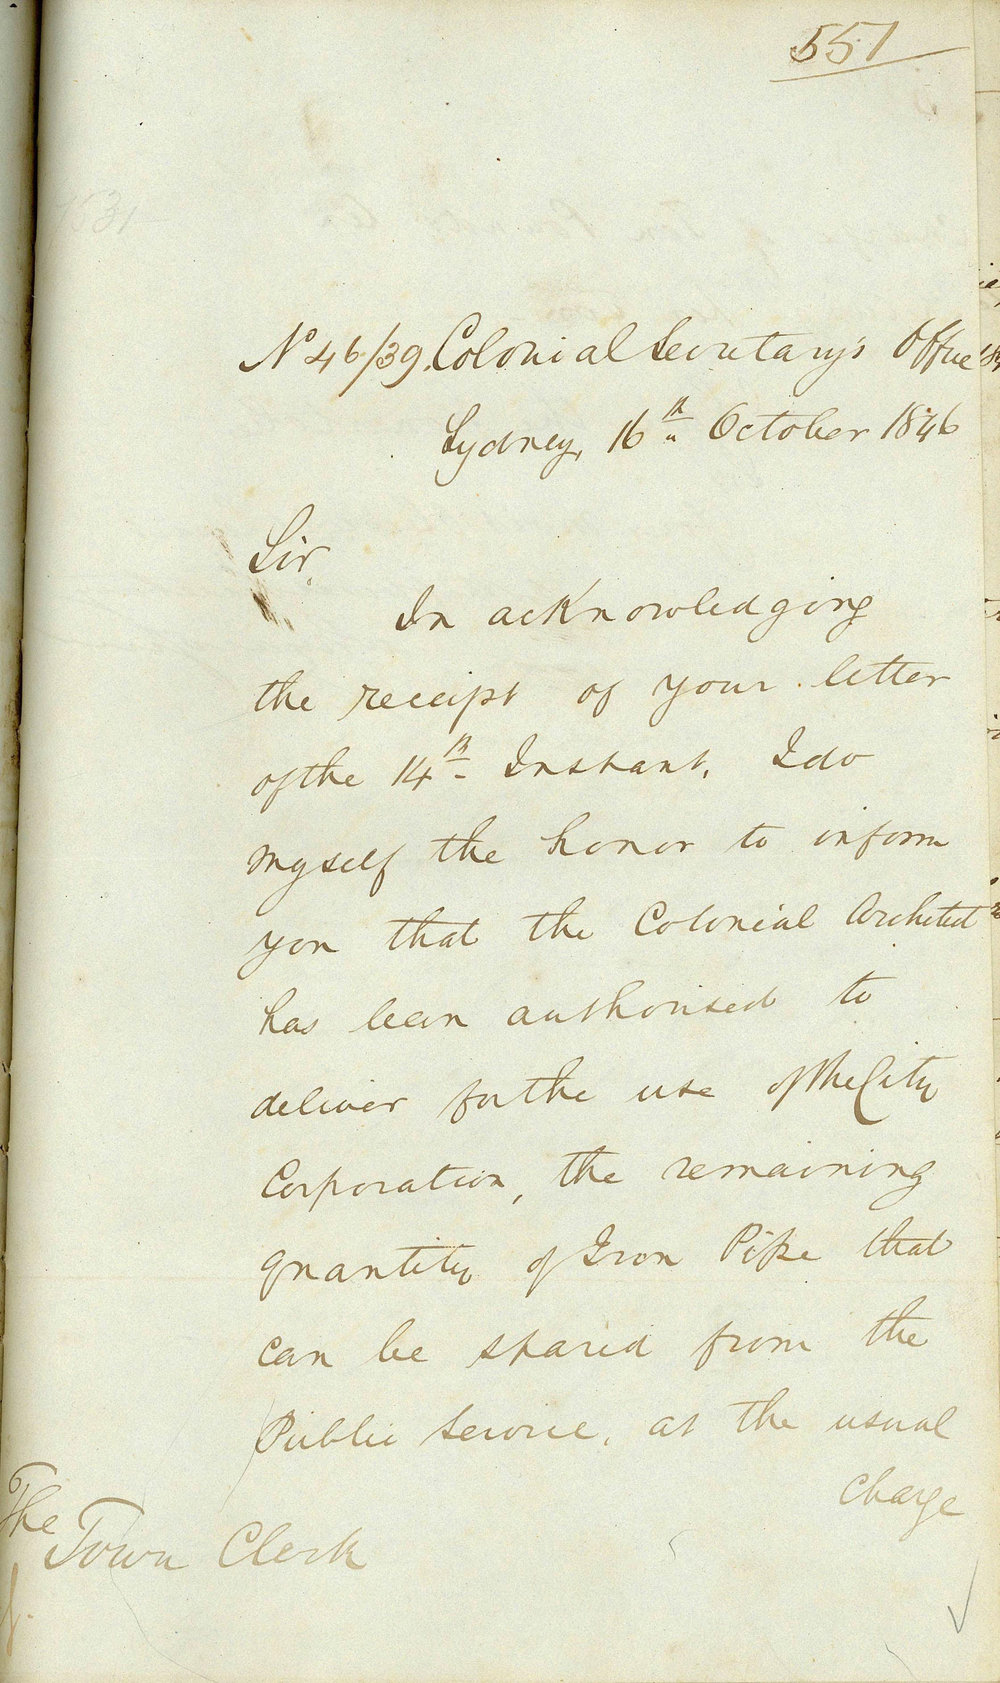 551
No 46/39. Colonial Secretary's Office
Sydney, 16th October 1846
Sir,
In acknowledging
the receipt of your letter
of the 14th Instant, I do
myself the honor to inform
you that the Colonial Architect
has been authorised to
deliver for the use of the City
Corporation, the remaining
quantity of Iron Pipe that
can be spared from the
Public Service, at the usual
charge
The
Town Clerk